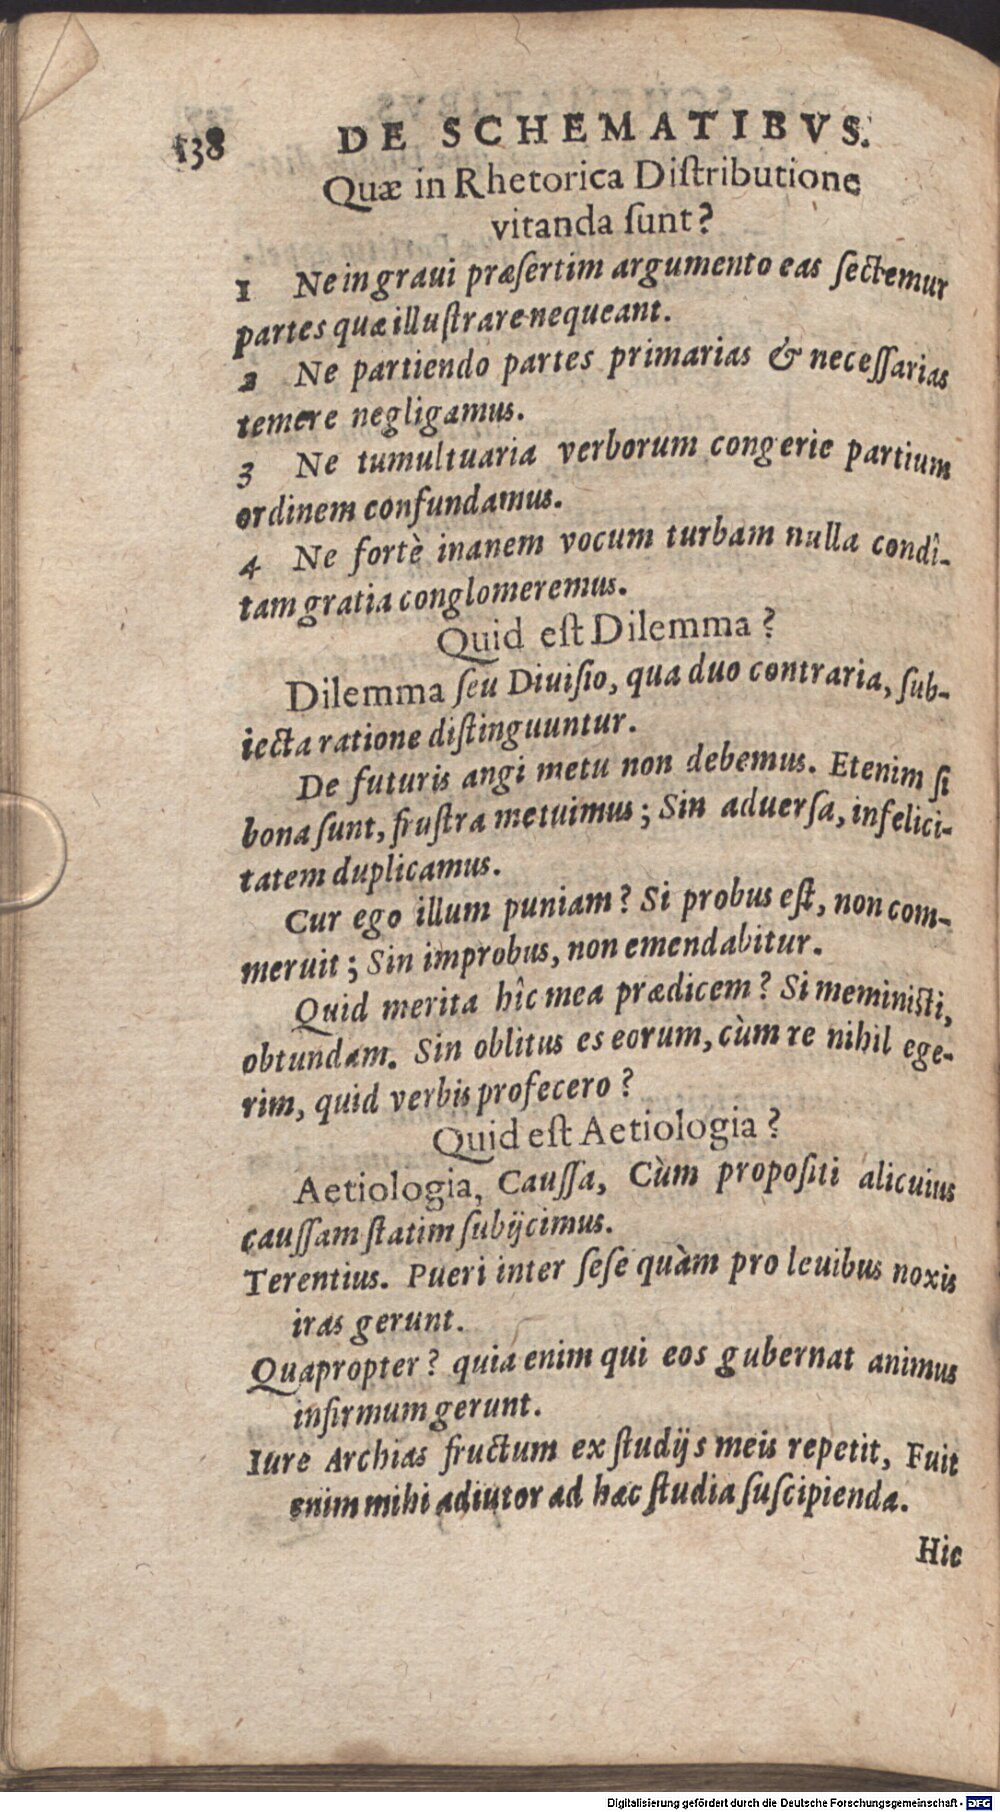 138 DE SCHEMATIBVS.
Quæ in Rhetorica Diſtributione
vitanda ſunt?
1 Ne in graui præſertim argumento eas ſectemur
partes quæ illuſtrare nequeant.
2 Ne partiendo partes primarias & neceſſarias
temere negligamus.
3 Ne tumultuaria verborum congerie partium
ordinem confundamus.
4 Ne fortè inanem vocum turbam nulla condî-
tam gratia conglomeremus.
Quid eſt Dilemma?
Dilemma ſeu Diuiſio, qua duo contraria, ſub-
iecta ratione diſtinguuntur.
De futuris angi metu non debemus. Etenim ſi
bona ſunt, fruſtra metuimus; Sin aduerſa, infelici-
tatem duplicamus.
Cur ego illum puniam? Si probus eſt, non com-
meruit; Sin improbus, non emendabitur.
Quid merita hîc mea prædicem? Si meminiſti,
obtundam. Sin oblitus es eorum, cùm re nihil ege-
rim, quid verbis profecero?
Quid eſt Aetiologia?
Aetiologia, Cauſſa, Cùm propoſiti alicuius
cauſſam ſtatim ſubijcimus.
Terentius. Pueri inter ſeſe quàm pro leuibus noxis
iras gerunt.
Quapropter? quia enim qui eos gubernat animus
infirmum gerunt.
Iure Archias fructum ex ſtudijs meis repetit, Fuit
enim mihi adiutor ad hæc ſtudia ſuſcipienda.
Hic
Digitalisierung gefördert durch die Deutsche Forschungsgemeinschaft - DFG